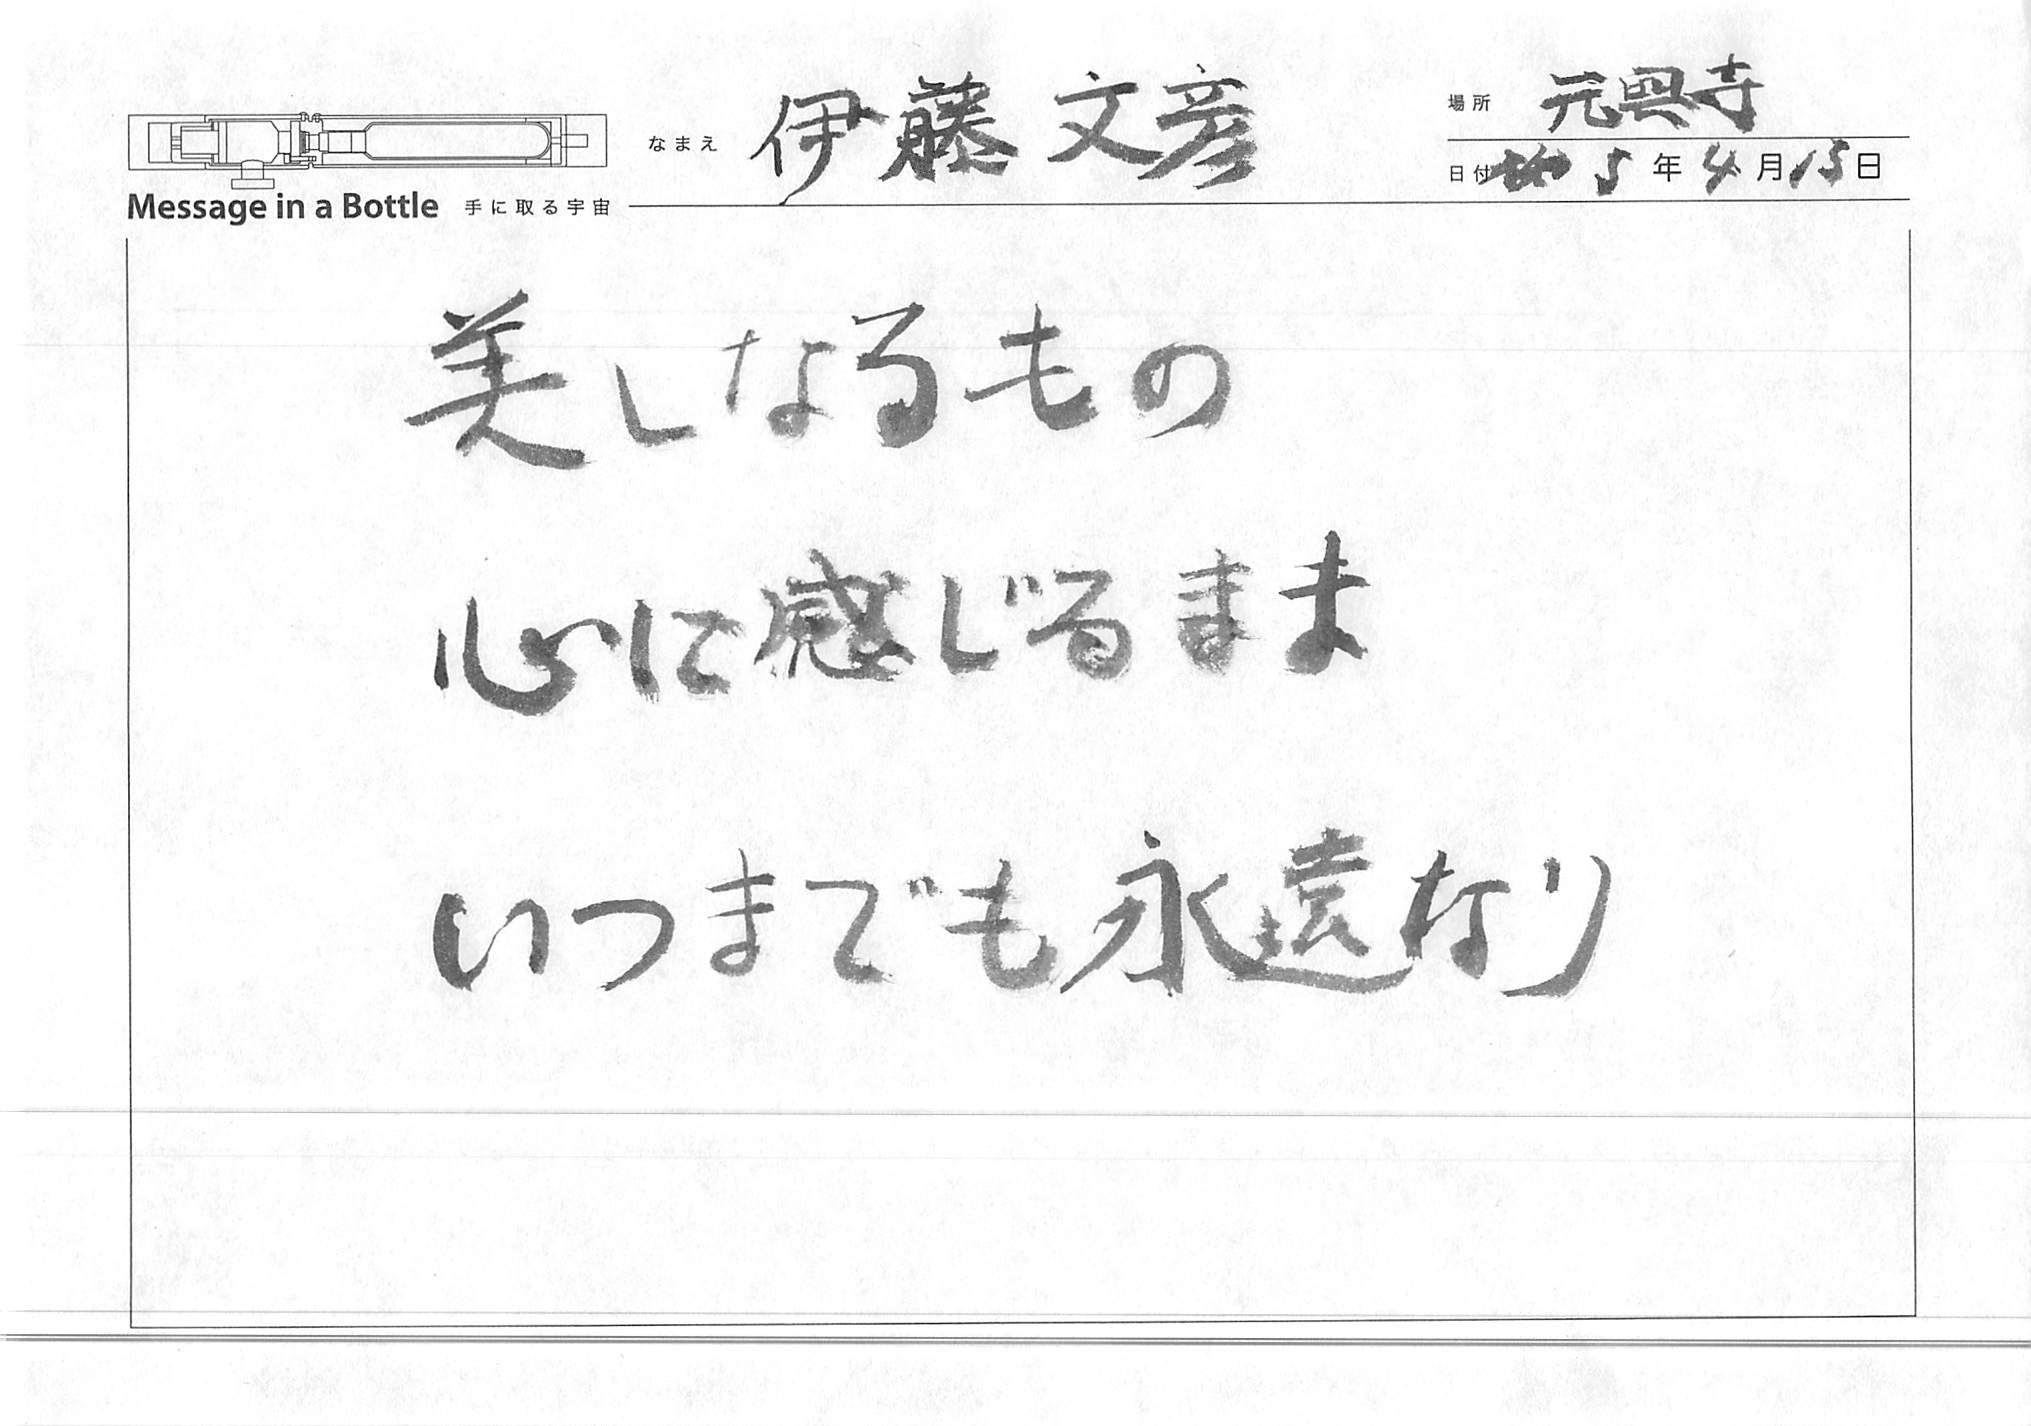 なまえ 伊藤 文彦
場所 元興寺
日付 5年4月15日
Message in a Bottle 手に取る宇宙
美しなるもの
心に感じるまま
いつまでも永遠なり